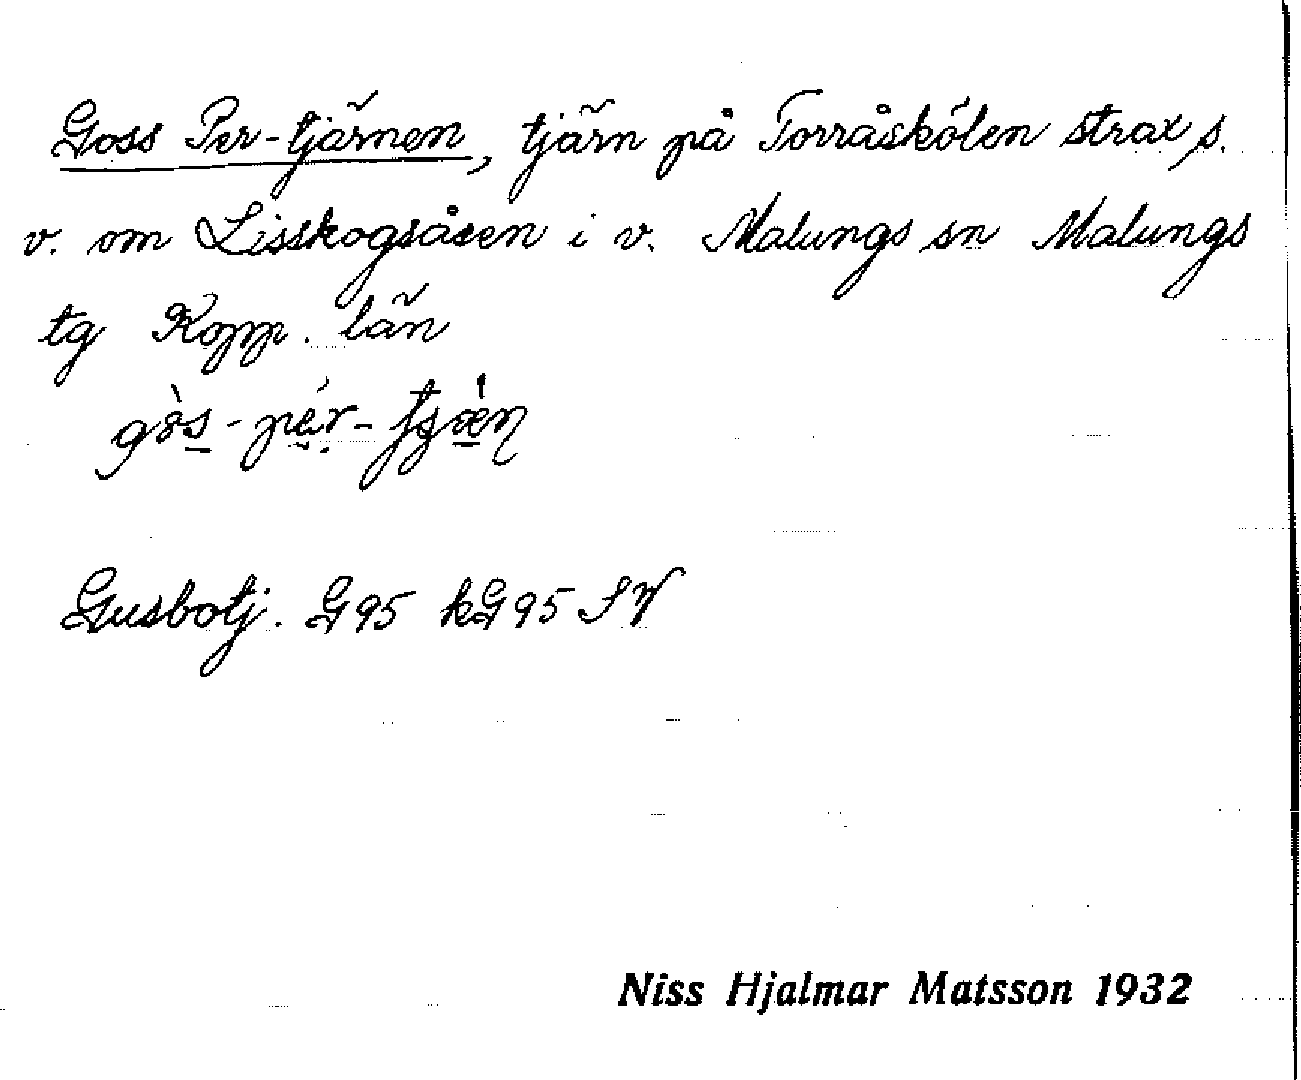 Goss Per-tjärnen, tjärn på Torråskölen strax s.
v. om Lisskogsåsen i v. Malungs sn Malungs
tg Kopp. län
Gusbotj. G95 kG95 SV
Niss Hjalmar Matsson 1932